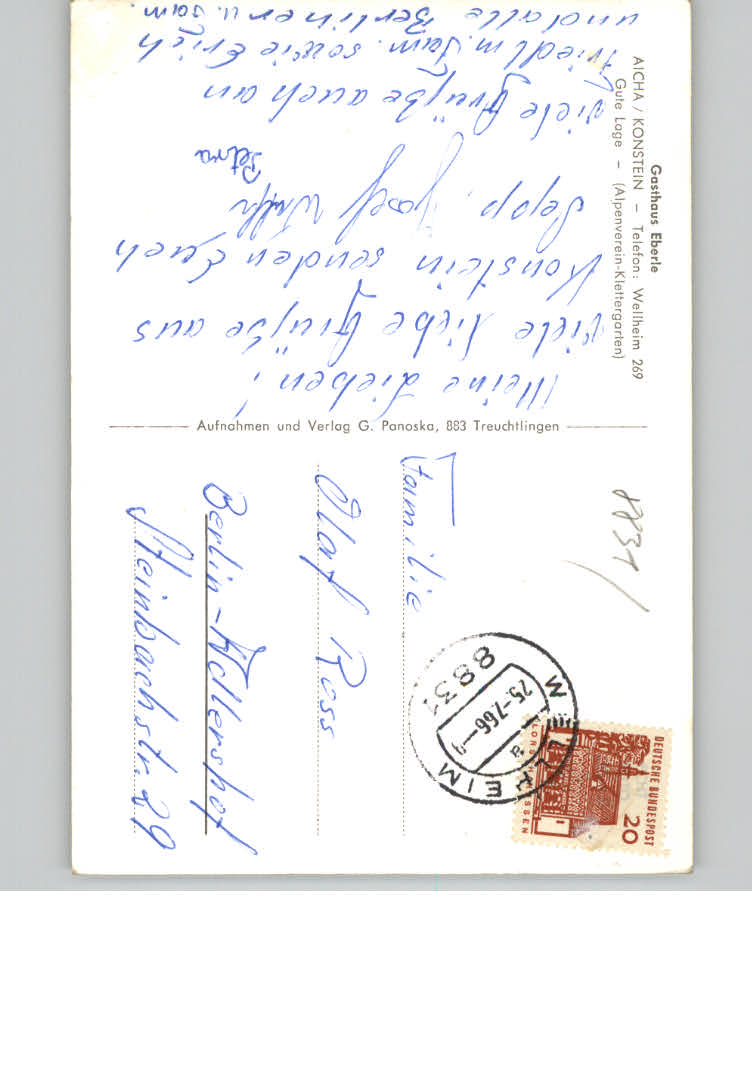 Gasthaus Eberle
AICHA / KONSTEIN – Telefon: Wellheim 269
Gute Lage – (Alpenverein-Klettergarten)
Meine Lieben!
Viele liebe Grüße aus
Konstein senden Euch
Sepp, Josef
Petra
Viele Grüße auch an
Friedl m. Fam. sowie Erich
und alle Berliner u. Fam.
Aufnahmen und Verlag G. Panoska, 883 Treuchtlingen
8831
DEUTSCHE BUNDESPOST
20
LORSCH HESSEN
WELLHEIM
25.-7.66
a
8831
Familie
Olaf Ross
Berlin-Adlershof
Steinbachstr. 29